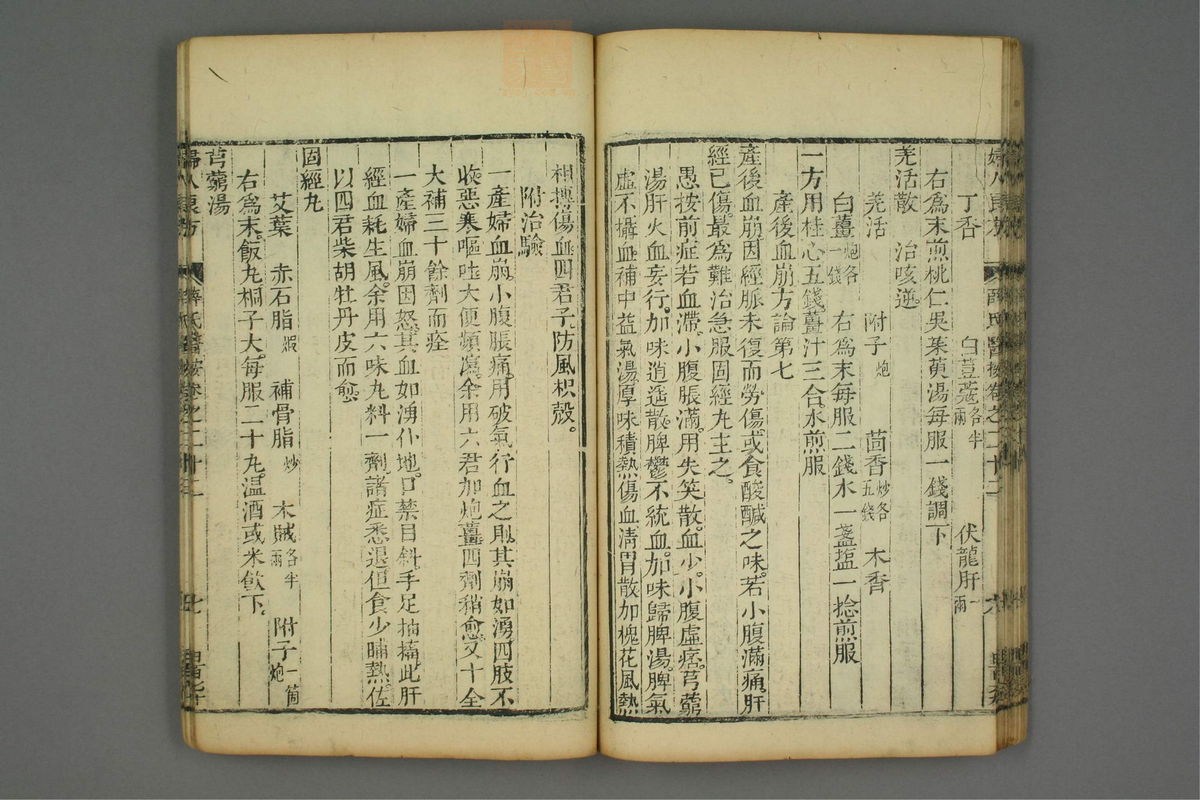 丁香 白荳蔻各半兩 伏龍肝一兩
右爲末煎桃仁吳茱萸湯每服一錢調下
羌活散 治咳逆
羌活 附子炮 茴香炒各五錢 木香
白薑炮各一錢 右爲末每服二錢水一盞塩一捻煎服
一方用桂心五錢薑汁三合水煎服
產後血崩方論第七
產後血崩因經脈未復而勞傷或食酸鹹之味若小腹滿痛肝
經已傷最爲難治急服固經丸主之。
愚按前症若血滯小腹脹滿用失笑散血少小腹虛痞芎藭
湯肝火血妄行加味逍遥散脾鬱不統血加味歸脾湯脾氣
虛不攝血補中益氣湯厚味積熱傷血清胃散加槐花風熱
相搏傷血四君子防風枳殼。
附治驗
一產婦血崩小腹脹痛用破氣行血之劑其崩如湧四肢不
收惡寒嘔吐大便頻瀉余用六君加炮薑四劑稍愈又十全
大補三十餘劑而痊
一產婦血崩因怒其血如湧仆地口禁目斜手足搐搦此肝
經血耗生風余用六味丸料一劑諸症悉退但食少晡熱佐
以四君柴胡牡丹皮而愈
固經丸
艾葉 赤石脂煆 補骨脂炒 木賊各半兩 附子一箇炮
右爲末飯丸桐子大每服二十丸温酒或米飲下。
芎藭湯
婦人良方 薛氏醫按卷之二十二 七